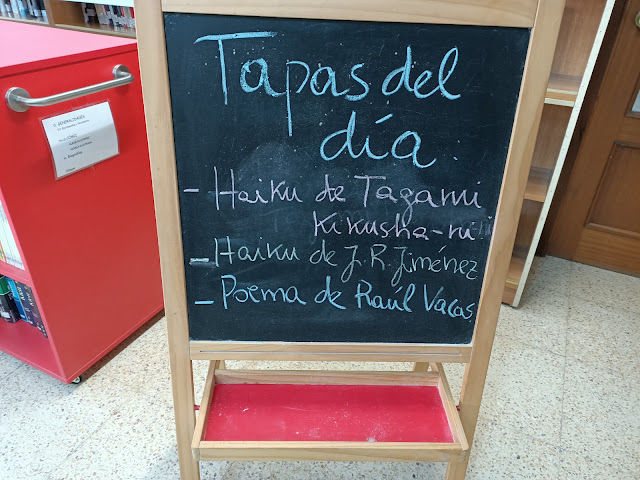 Tapas del
día
- Haiku de Tagami
Kikusha-ni
- Haiku de J. R. Jiménez
- Poema de Raúl Vacas